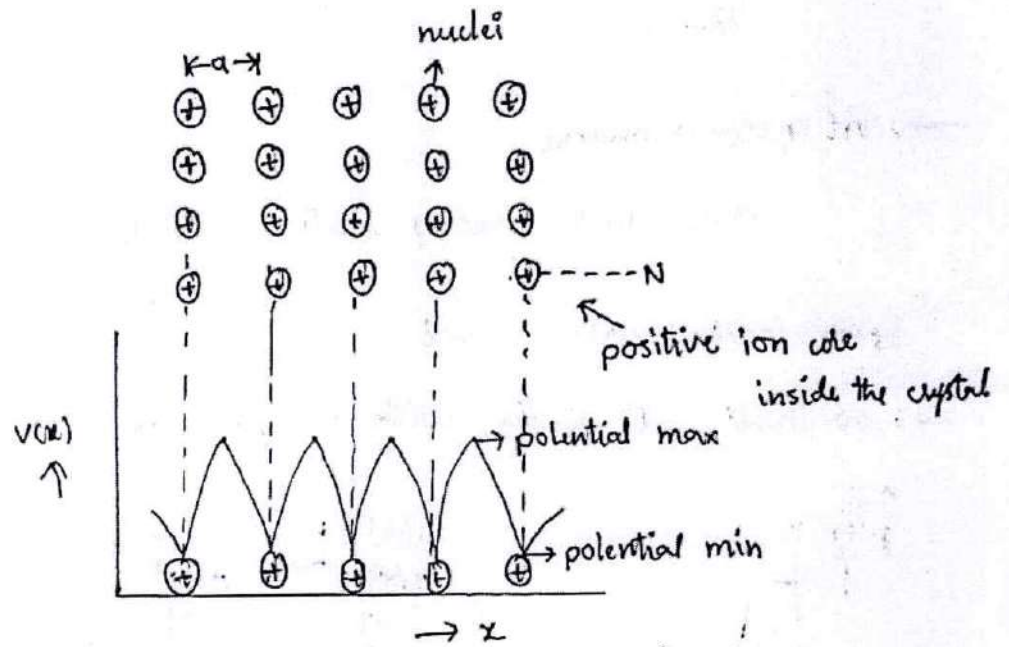 nuclei
a
+ + + + +
+ + + + +
+ + + + +
+ + + + + N
positive ion core
inside the crystal
V(x)
potential max
potential min
+ + + + +
x